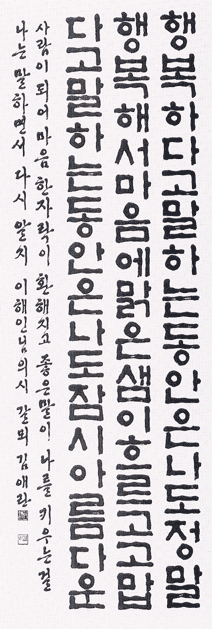 행복하다고말하는동안은나도정말
행복해서마음에맑은샘이흐르고고맙
다고말하는동안은나도잠시아름다운
사람이 되어 마음 한자락이 환해지고 좋은말이 나를 키우는걸
나는 말하면서 다시 알지 이해인님의시 갈뫼 김애란